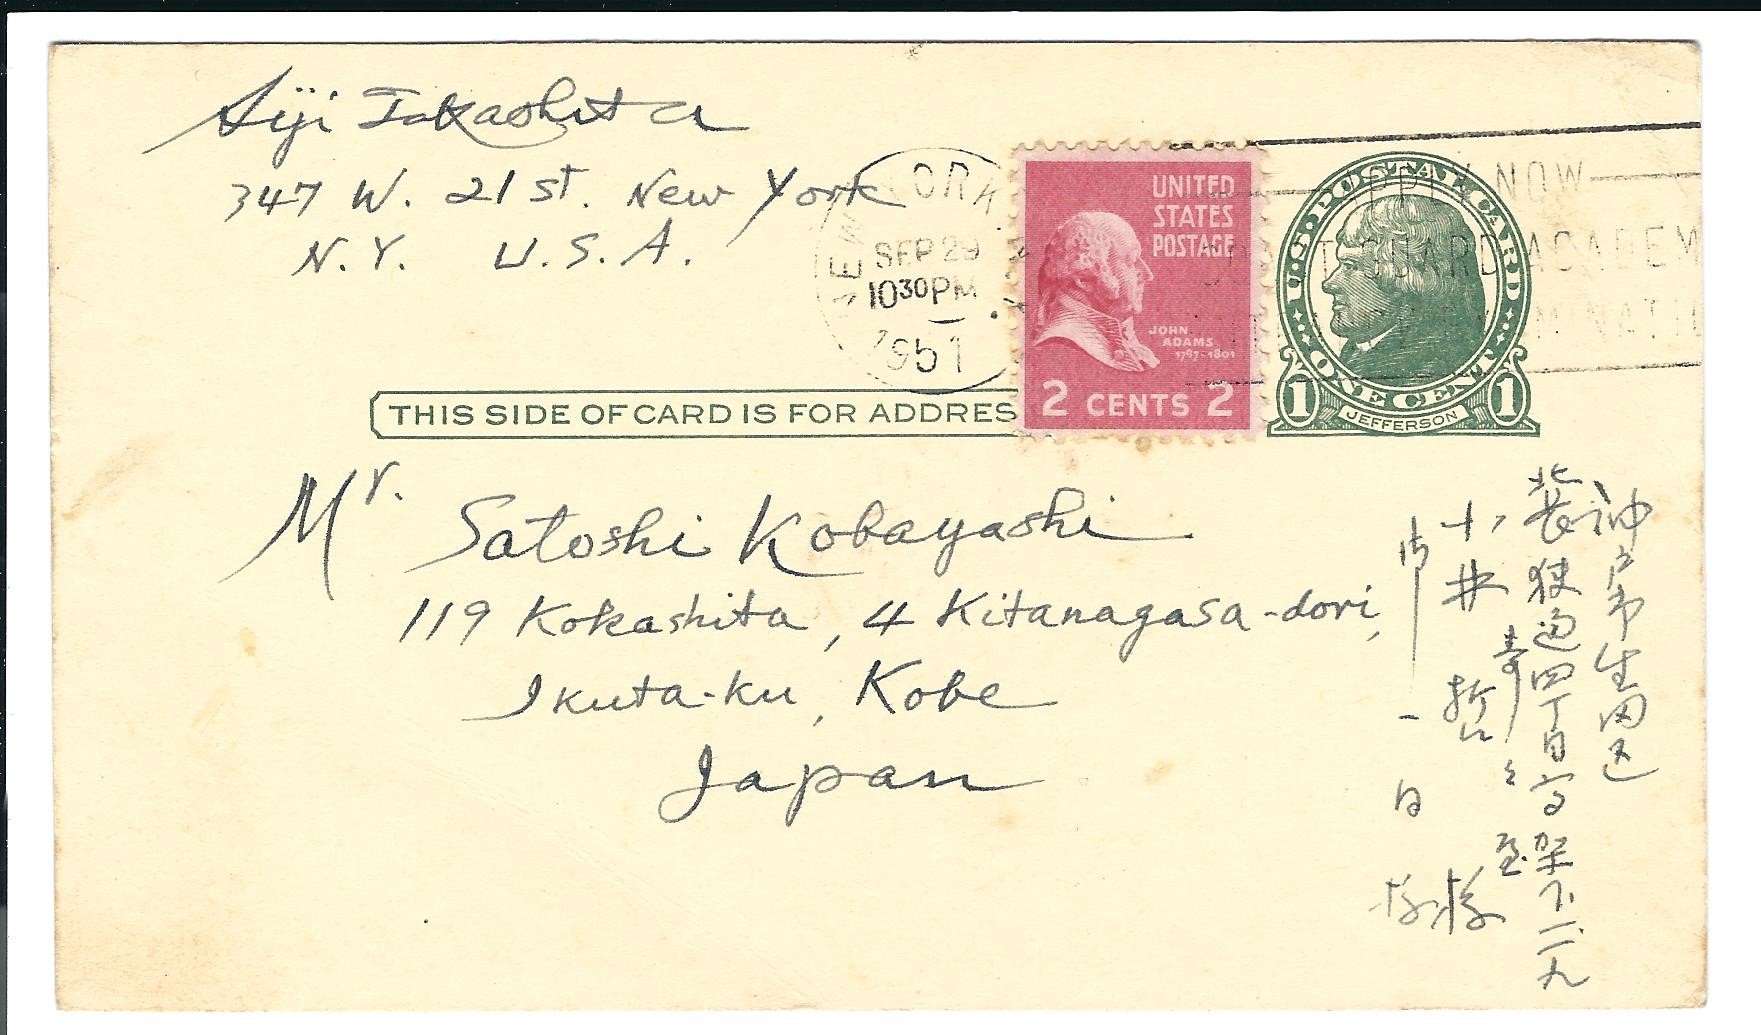 Siji Takashita
347 W. 21 st. New York
N.Y. U.S.A.
NEW YORK, N.Y.
SEP 29
1030PM
1951
UNITED
STATES
POSTAGE
JOHN
ADAMS
1797-1801
2 CENTS 2
APPLY NOW
COAST GUARD ACADEM
MINATI
U.S. POSTAL CARD
1 ONE CENT 1
JEFFERSON
THIS SIDE OF CARD IS FOR ADDRES
Mr. Satoshi Kobayashi
119 Kokashita, 4 Kitanagasa-dori,
Ikuta-ku, Kobe
Japan
神戸市生田区
北長狭通四丁目高架下一一九
小林 哲 様
一日